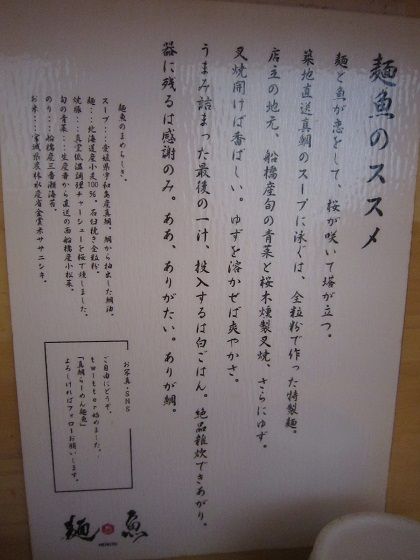 麺魚のススメ
麺と魚が恋をして、桜が咲いて塔が立つ。
築地直送真鯛のスープに泳ぐは、全粒粉で作った特製麺。
店主の地元、船橋産旬の青菜と桜木燻製叉焼、さらにゆず。
叉焼開けば香ばしい。ゆずを溶かせば爽やかさ。
うまみ詰まった最後の一汁、投入するは白ごはん。絶品雑炊できあがり。
器に残るは感謝のみ。ああ、ありがたい。ありが鯛。
麺魚のまめちしき。
スープ:::愛媛県宇和島産真鯛、鯛から抽出した鯛油。
麺:::北海道産小麦100%。石臼挽き全粒粉。
焼豚:::真空低温調理チャーシューを桜で燻しました。
旬の青菜:::生産者から直送の西船橋産小松菜。
のり:::船橋産三番瀬海苔。
お米:::宮城県農林水産省金賞米ササニシキ。
お写真・SNS
ご自由にどうぞ。
twitter始めました。
「真鯛らーめん麺魚」
よろしければフォローお願いします。
麺魚
MENGYO